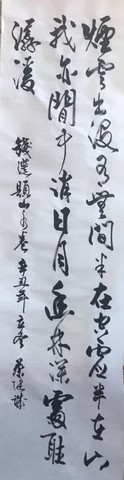 煙雲出没有無間半在空虚半在山
我亦閒中消日月幽林深處聽
潺湲
錢選題山水卷辛丑年立冬